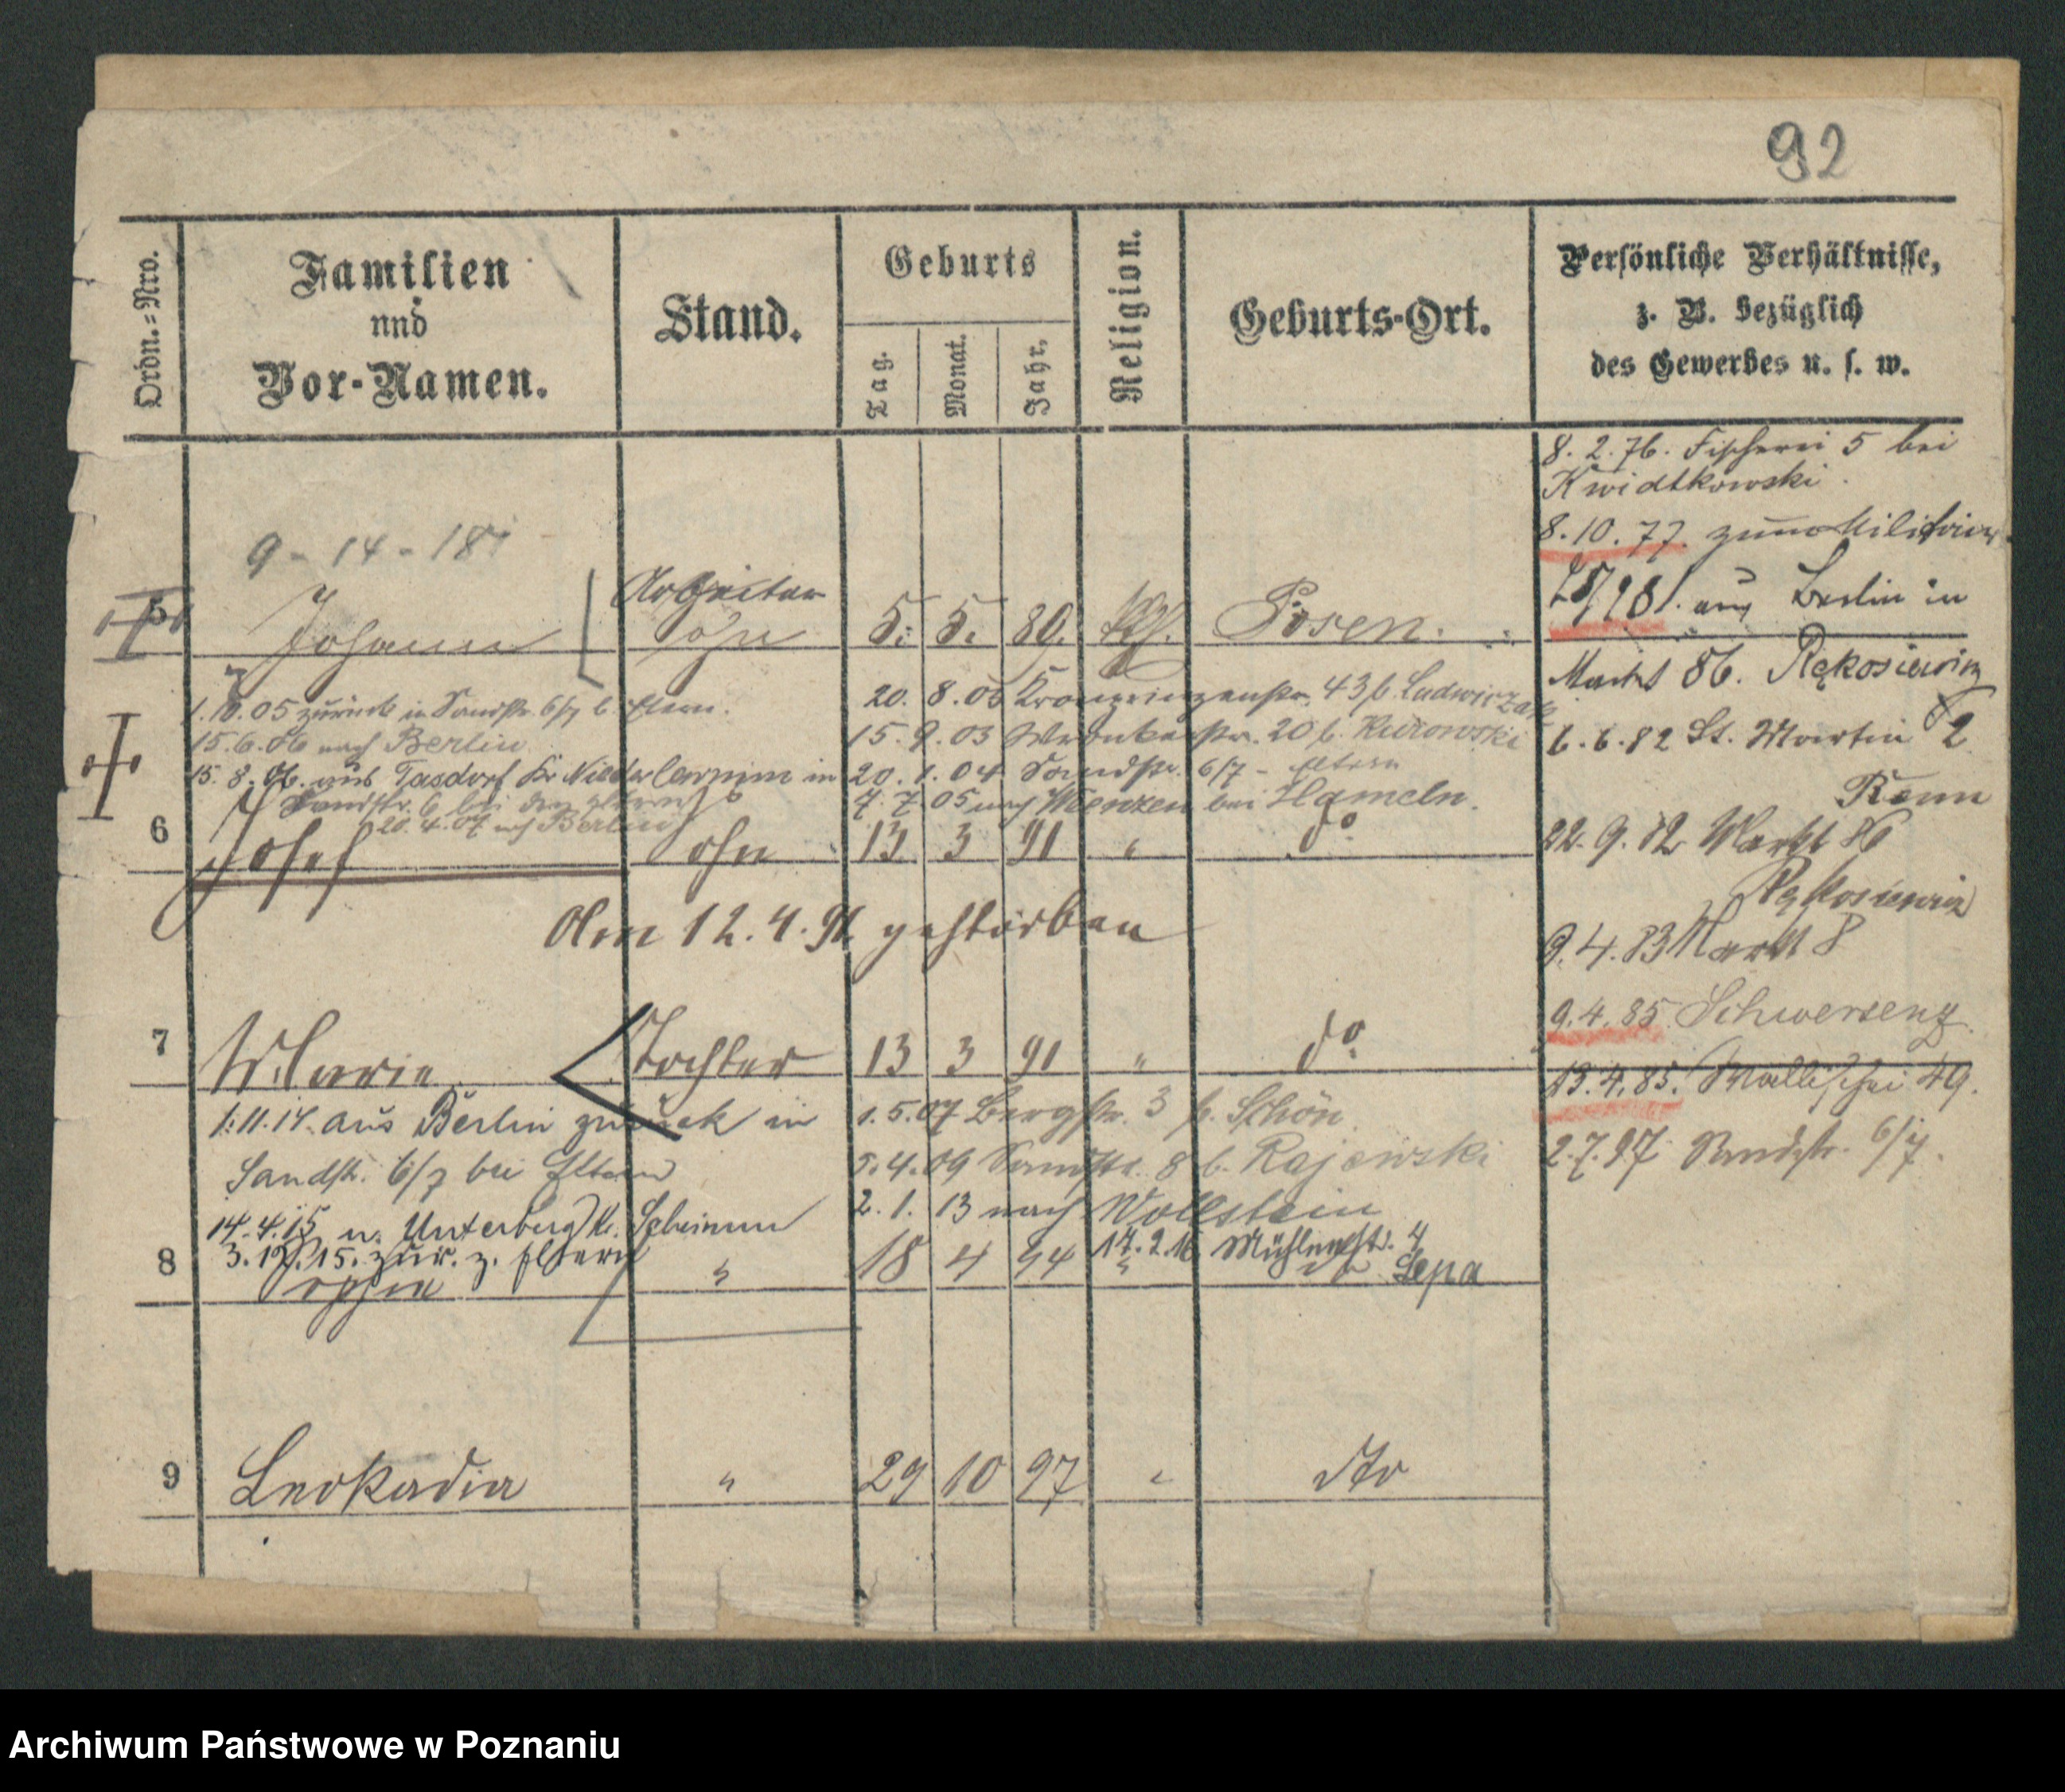 92
Ordn.=Nro.
Familien
und
Vor-Namen.
Stand.
Geburts
Tag.
Monat.
Jahr.
Religion.
Geburts-Ort.
Persönliche Verhältnisse,
z. B. bezüglich
des Gewerbes u. s. w.
8. 2. 76. Fischerei 5 bei
Kwidtkowski.
8. 10. 77. zum Militair
81. aus Berlin in
Markt 86. Rękosiewicz
6. 6. 82 St. Martin 2
22. 9. 82 Markt 86
Rękosiewicz
9. 4. 83 Markt 8
9. 4. 85. Schwersenz
13. 4. 85. Wallischei 49.
2. 7. 97 Sandstr. 6/7.
9 - 14 - 18
5 Johann Arbeiter Sohn 5. 5. 89. kth. Posen.
1. 10. 05 zurück in Sandstr. 6/7 b. Eltern.
15. 6. 06 nach Berlin
15. 8. 06. aus Tasdorf Kr. Niederbarnim in
Sandstr. 6 bei den Eltern
20. 4. 07 nach Berlin
20. 8. 03 Kronprinzenstr. 43 b. Ludwiczak
15. 9. 03 Wronkerstr. 20 b. Kurowski
20. 1. 04 Sandstr. 6/7 - Eltern
7. 7. 05 nach Wenzen bei Hameln.
6 Josef Sohn 13 3 91 " do
Am 12. 4. 91 gestorben
7 Marie Tochter 13 3 91 " do
1. 11. 14. aus Berlin zurück in
Sandstr. 6/7 bei Eltern
14. 4. 15 n. Unterberg Kr. Schrimm
3. 12. 15. zur. z. Eltern
1. 5. 07 Bergstr. 3 b. Schön
5. 4. 09 Sandstr. 8 b. Rajewski
2. 1. 13 nach Wollstein
17. 2. 16 Mühlenstr. 4
Lepa
8 Sophie " 18 4 94 " do
9 Leokadia " 29 10 97 " dto
Archiwum Państwowe w Poznaniu